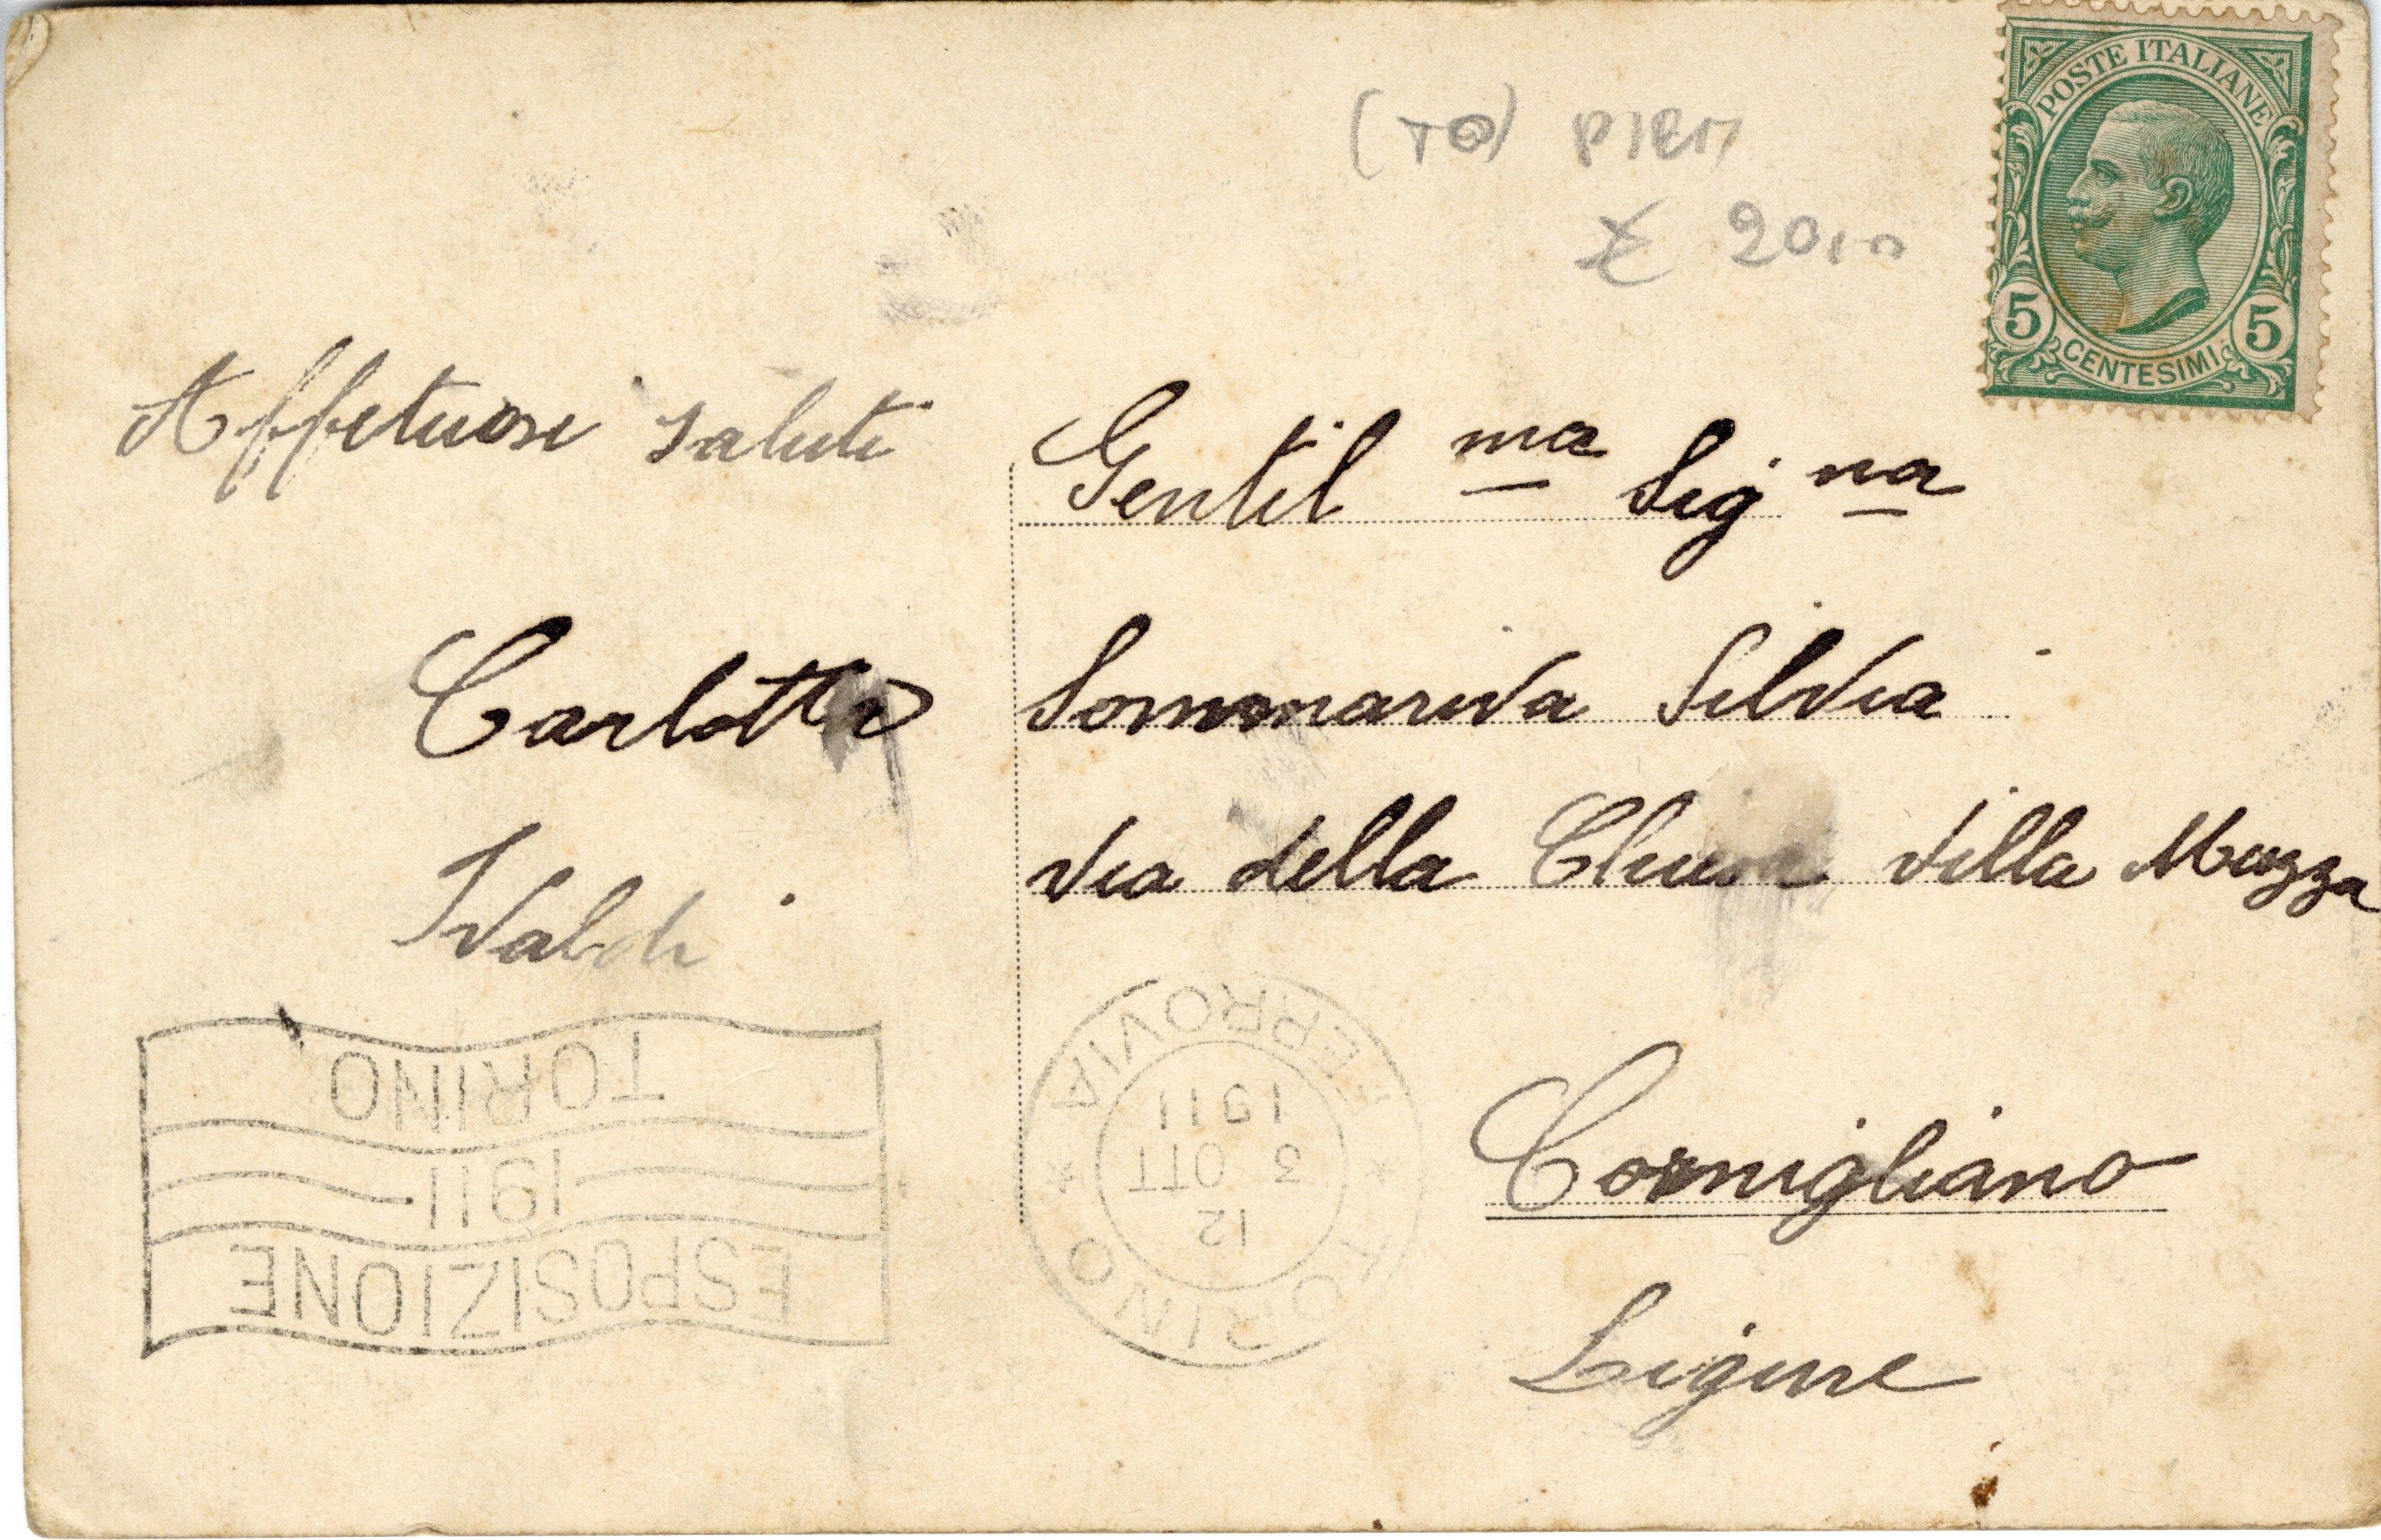 POSTE ITALIANE
5 5
CENTESIMI
(TO) PIEM
£ 20,00
Affetuosi saluti
Carlotta
Ivaldi
Gentil ma Sig na
Sommariva Silvia
Via della Chiesa Villa Mazza
Cornigliano
Ligure
TORINO FERROVIA
12
3 OTT
1911
ESPOSIZIONE
1911
TORINO